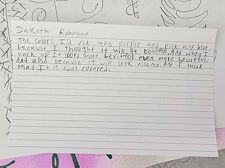 Dakota Robinson
The colors I'd use was purple and pink and blue
because I thought it will be butiful. And when I
look up it looks more beutiful even more beutiful
And also because it will look nicer. And I think
that it is cool colored.